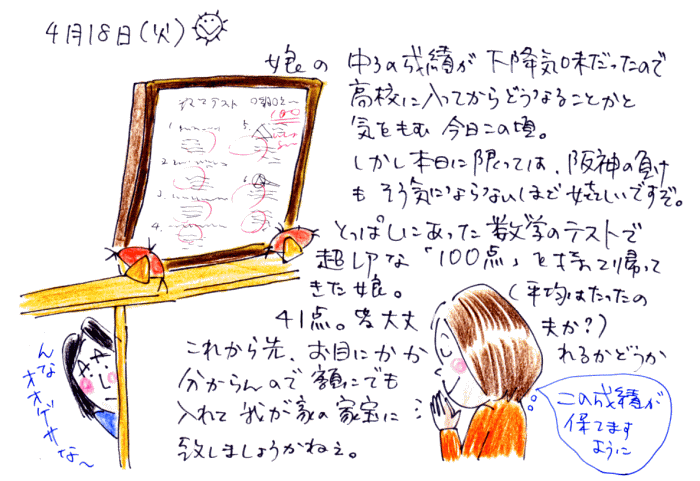 4月18日(火)
娘の 中3の成績が 下降気味だったので
高校に入ってからどうなることかと
気をもむ 今日この頃。
しかし本日に限っては、阪神の負け
も そう気にならないほど 嬉しいですぞ。
とっぱしにあった 数学のテストで
超レアな 「100点」を 持って帰って
きた娘。 (平均はたったの
41点。皆 大丈夫か?)
これから先、お目にかかれるかどうか
分からんので 額にでも
入れて 我が家の家宝に
致しましょうかねぇ。
数Iテスト
100
1.
2.
3.
4.
5.
6.
んな
オオゲサな〜
この成績が
保てます
ように